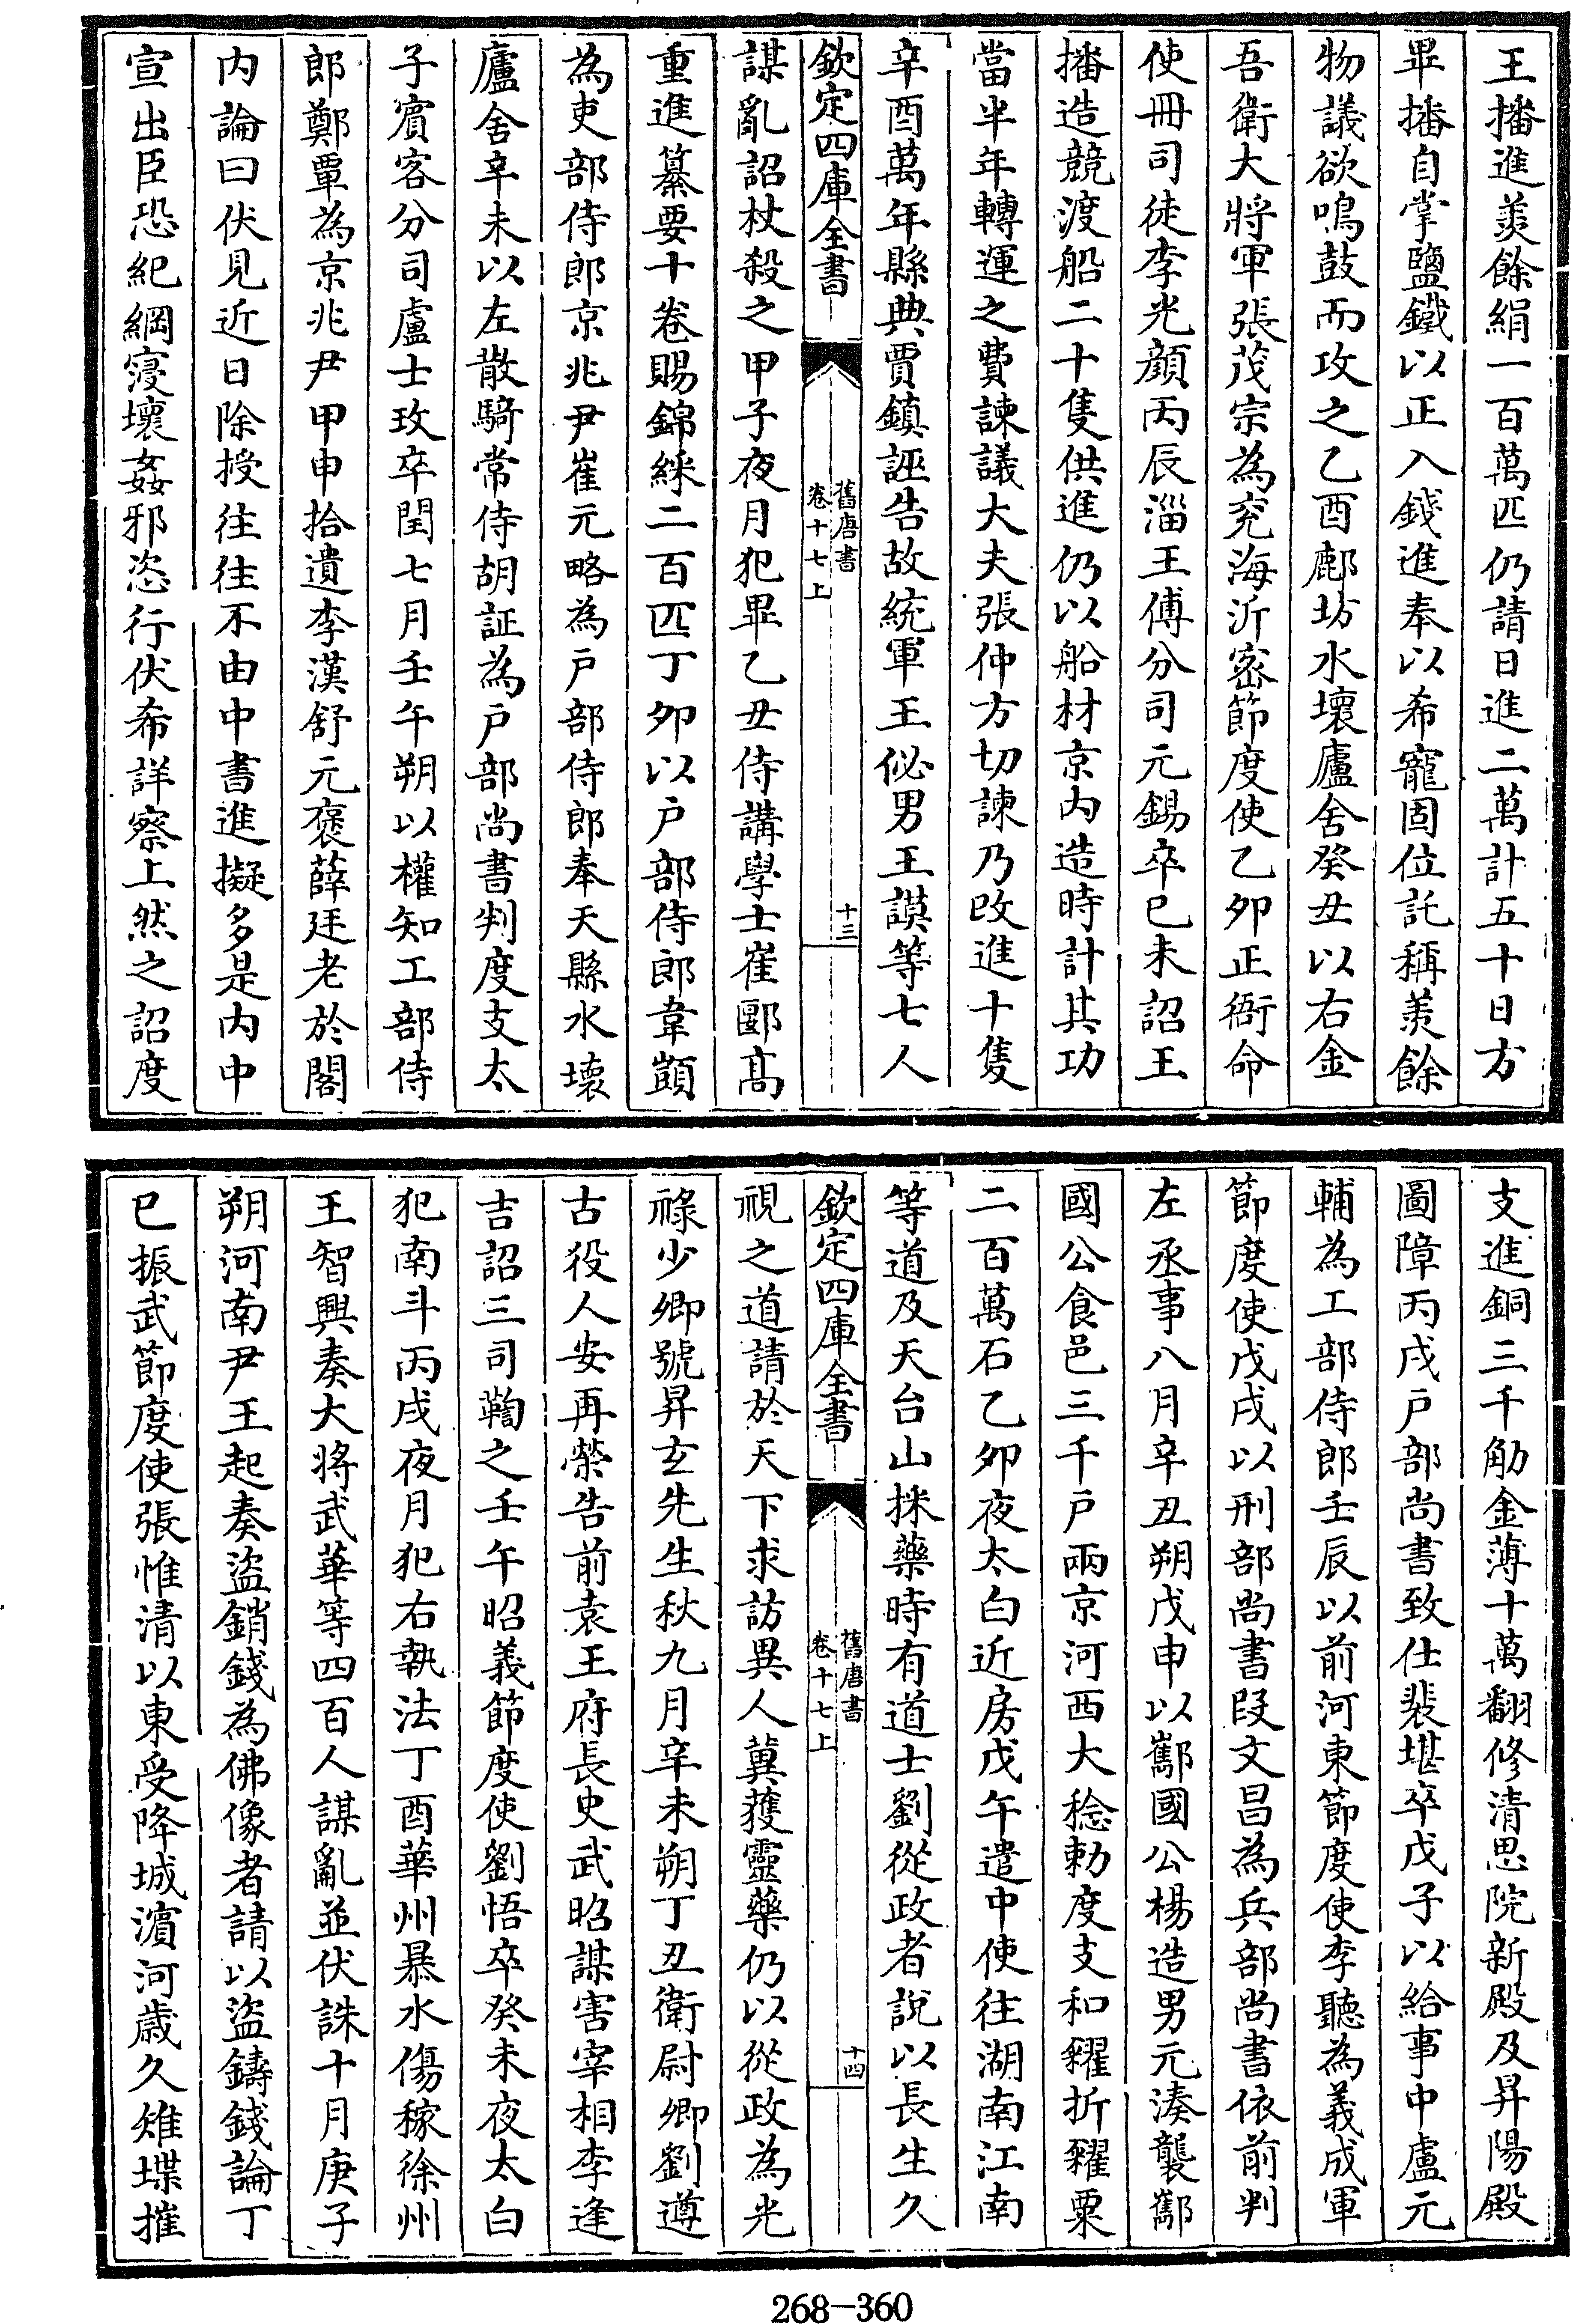 王播進羨餘絹一百萬匹仍請日進二萬計五十日方
畢播自掌鹽鐵以正入錢進奉以希寵固位託稱羨餘
物議欲鳴鼓而攻之乙酉鄜坊水壞廬舍癸丑以右金
吾衛大將軍張茂宗為兖海沂密節度使乙卯正衙命
使冊司徒李光顔丙辰淄王傅分司元錫卒已未詔王
播造競渡船二十隻供進仍以船材京内造時計其功
當半年轉運之費諫議大夫張仲方切諫乃改進十隻
辛酉萬年縣典賈鎮誣告故統軍王佖男王謨等七人
欽定四庫全書
舊唐書
卷十七上
十三
謀亂詔杖殺之甲子夜月犯畢乙丑侍講學士崔郾高
重進纂要十卷賜錦綵二百匹丁卯以户部侍郎韋顗
為吏部侍郎京兆尹崔元略為户部侍郎奉天縣水壞
廬舍辛未以左散騎常侍胡証為户部尚書判度支太
子賓客分司盧士玫卒閏七月壬午朔以權知工部侍
郎鄭覃為京兆尹甲申拾遺李漢舒元褒薛廷老於閣
内論曰伏見近日除授往往不由中書進擬多是内中
宣出臣恐紀綱寖壞姦邪恣行伏希詳察上然之詔度
支進銅三千觔金薄十萬翻修清思院新殿及昇陽殿
圖障丙戌户部尚書致仕裴堪卒戊子以給事中盧元
輔為工部侍郎壬辰以前河東節度使李聽為義成軍
節度使戊戌以刑部尚書段文昌為兵部尚書依前判
左丞事八月辛丑朔戊申以酅國公楊造男元湊襲酅
國公食邑三千户兩京河西大稔勅度支和糴折糴粟
二百萬石乙卯夜太白近房戊午遣中使往湖南江南
等道及天台山採藥時有道士劉從政者說以長生久
欽定四庫全書
舊唐書
卷十七上
十四
視之道請於天下求訪異人冀獲靈藥仍以從政為光
祿少卿號昇玄先生秋九月辛未朔丁丑衛尉卿劉遵
古役人安再榮告前袁王府長史武昭謀害宰相李逢
吉詔三司鞫之壬午昭義節度使劉悟卒癸未夜太白
犯南斗丙戌夜月犯右執法丁酉華州暴水傷稼徐州
王智興奏大將武華等四百人謀亂並伏誅十月庚子
朔河南尹王起奏盜銷錢為佛像者請以盜鑄錢論丁
已振武節度使張惟清以東受降城濵河歲久雉堞摧
268-360